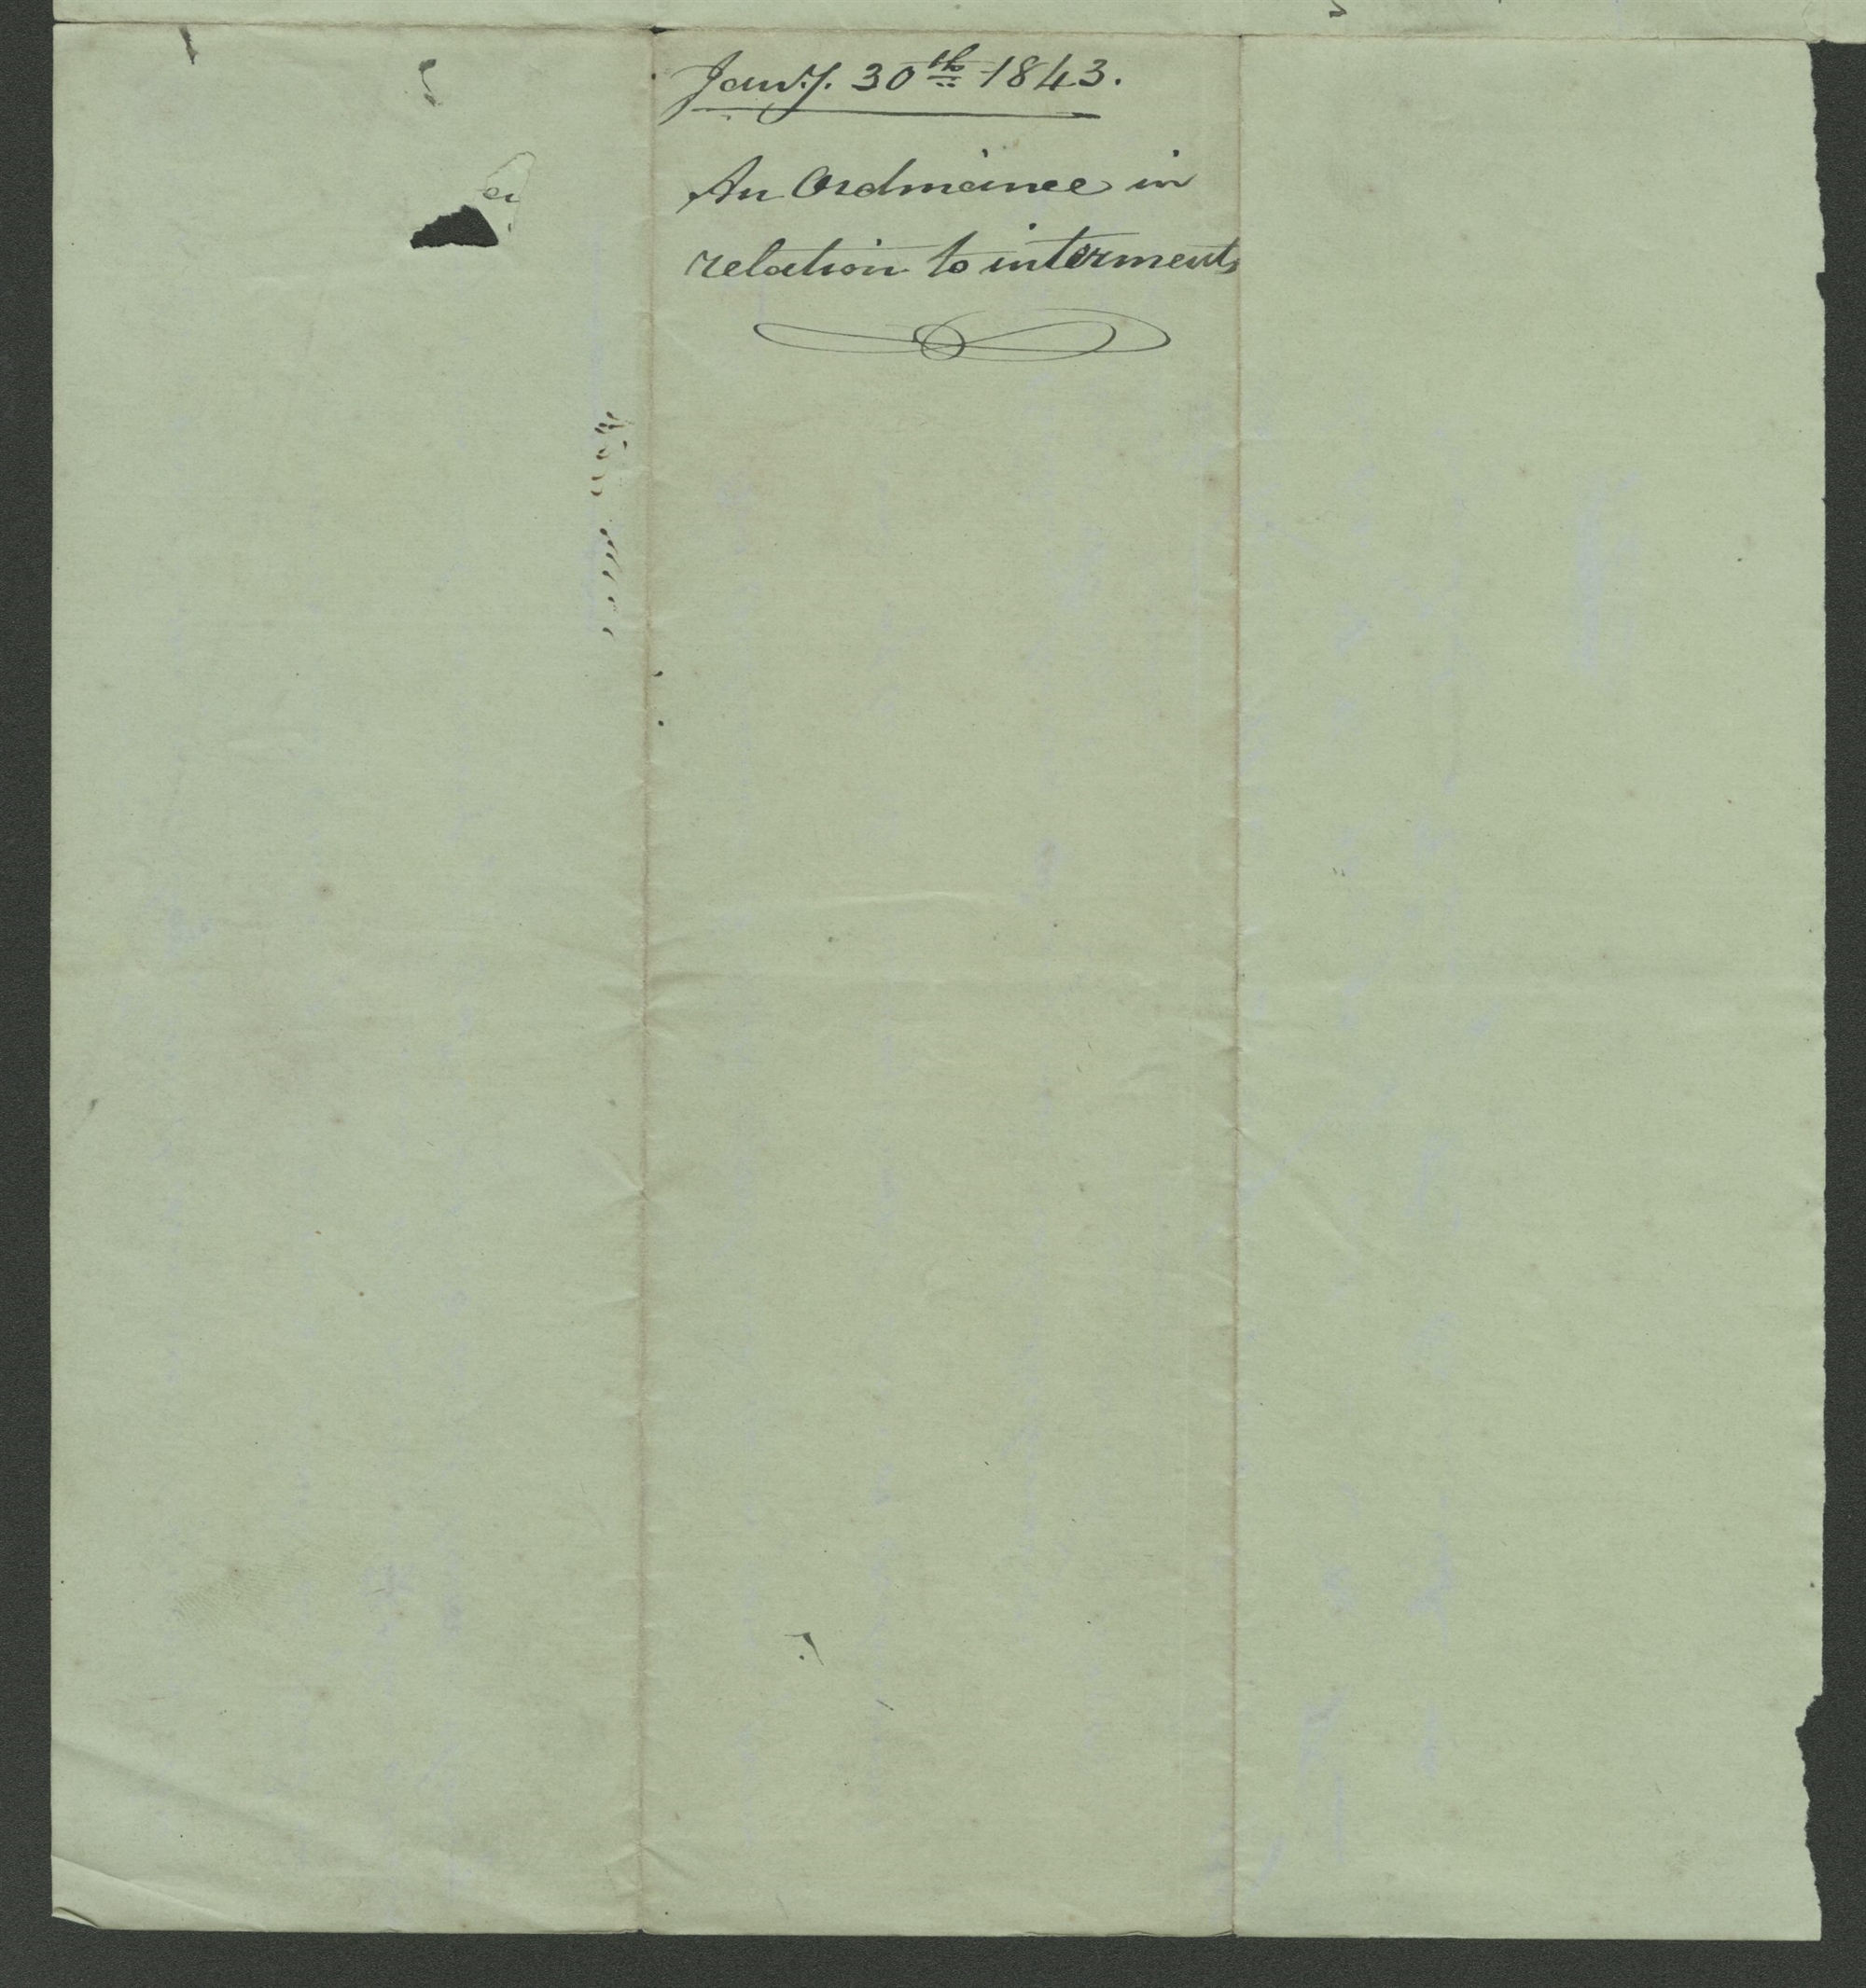 Jany. 30th 1843.
An Ordinance in
relation to interments